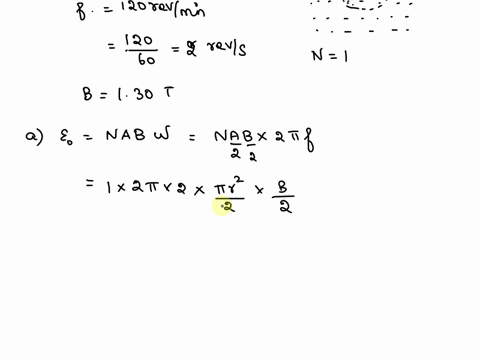 f. = 120 rev/min
= 120/60 = 2 rev/s
N = 1
B = 1.30 T
a) ε₀ = NAB W = NAB/2 2 × 2πf
= 1 × 2π × 2 × πr²/2 × B/2